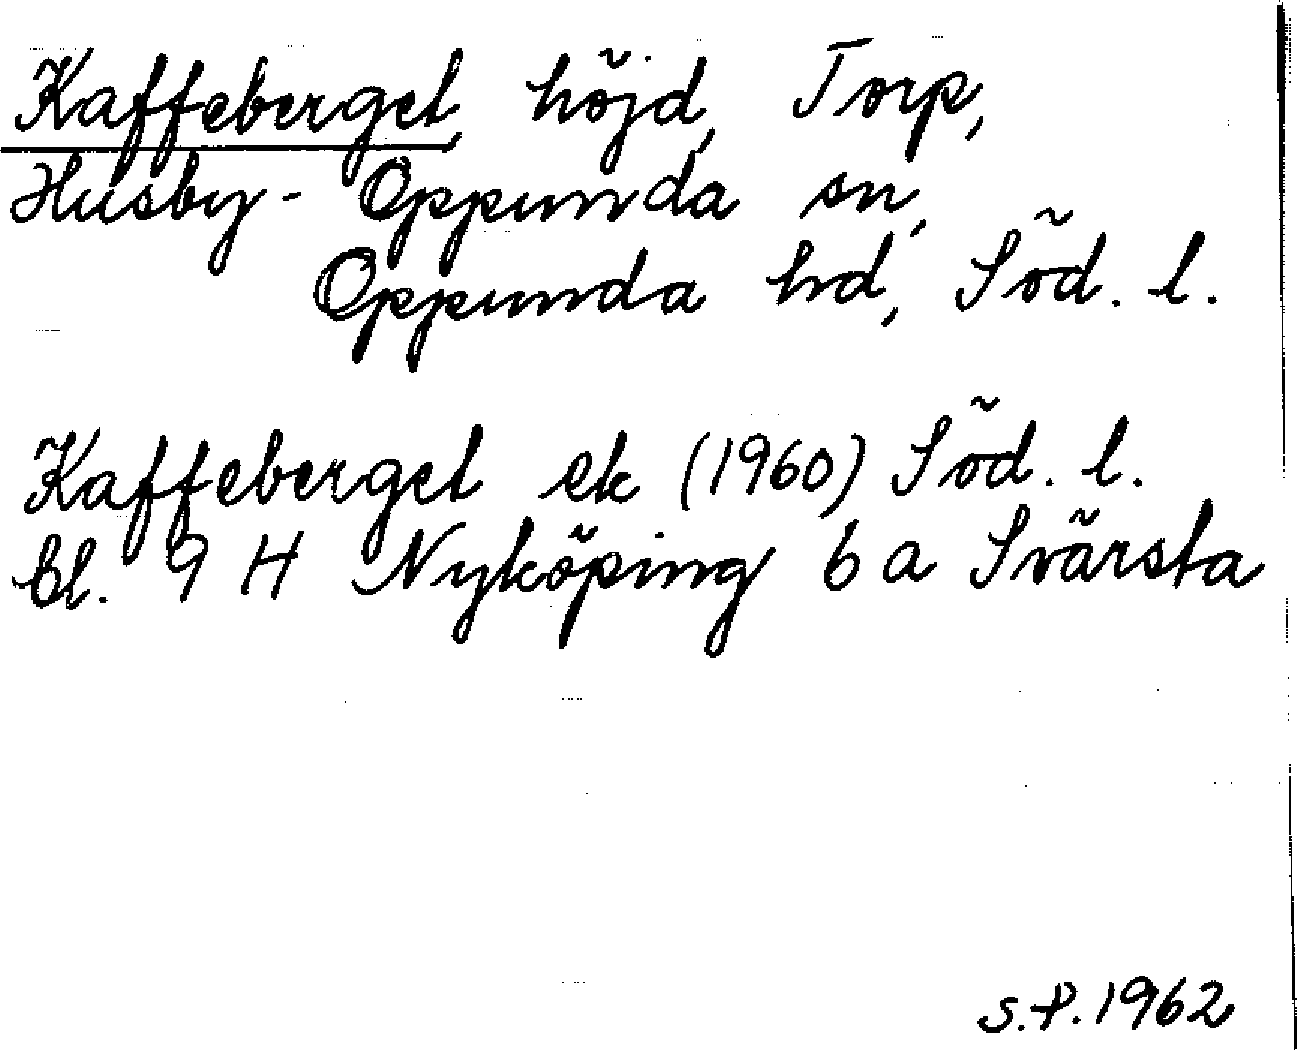 Kaffeberget, höjd, Torp,
Husby-Oppunda sn,
Oppunda hd, Söd. l.
Kaffeberget ek (1960) Söd. l.
bl. 9 H Nyköping 6 a Svärsta
S.P. 1962